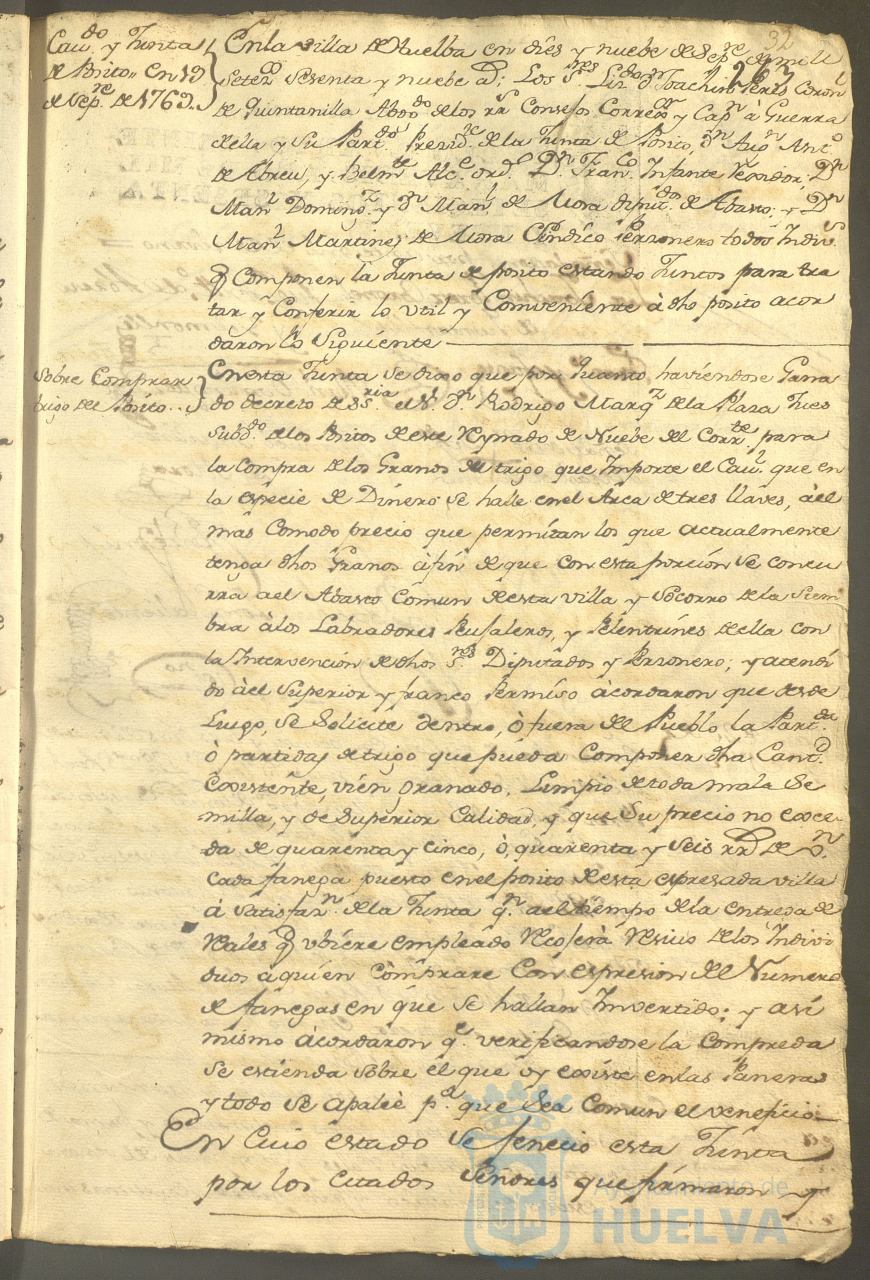 32
Cavdo. y Junta
de Posito,, en 19
de Sepre. de 1769.
En la villa de Huelba en dies y nuebe de Sepre. de mill
Setezs. Sesenta y nuebe as; Los Sres. Lizdo. Dn. Joachin Perez Coron
de Quintanilla Abogdo. de los rrs Consejos Correxor. y Capn. à Guerra
de ella y Su Partdo. Presidte. de la Junta de Posito, Dn. Antto.
de Abreu, y Alce. ordo. Dn. Franco. Infante Rexidor, Dn
Manl. Domingz. y Dn Manl. de Mora diputdos. de Abasto, y Dn
Manl. Martinez de Mora Sindico Personero todos Indivs.
q Componen la Junta de posito estando Juntos para tra
tar y Conferir lo vtil y Combeniente à dho posito acor
daron lo Siguiente
Sobre Comprar
trigo del Posito..
En esta Junta se dixo que por quanto haviendose Gana
do decreto de SSria el Sr. Dn. Rodrigo Marqz de la Plaza Jues
Subdo. de los Positos de este Reynado de Nuebe del Corrte. para
la Compra de los Granos de trigo que Importe el Cavl. que en
la especie de Dinero se halle en el Arca de tres llaves, à el
mas Comodo precio que permitan los que actualmente
tenga dhos Granos à fin de que con esta porción se concu
rra a el Abasto Comun de esta villa y Socorro de la Siem
bra à los Labradores Pusaleros, y Pelentrines de ella con
la Intervención de dhos Sres. Diputados y Personero; y atendi
do à el Superior y franco Permiso àcordaron que desde
Luego, se Solicite dentro, ò fuera del Pueblo la Partda
ò partidas de trigo que pueda Componer dha Cantd.
Coxistente, vien granado, Limpio de toda mala Se
milla, y de Superior Calidad y que Su precio no exce-
da de quarenta y cinco, ò quarenta y seis rrs de vn.
Cada fanega puesto en el posito de esta expresada villa
à Satisfazn. de la Junta qn. a el tiempo de la entrega de
Reales q ubiere empleado Recoserà Resivo de los Indivi
duos à quien còmprare Con expresion del Numero
de fanegas en que se hallan Invertido; y así
mismo àcordaron qe. verificandose la Compreda
se estienda sobre el que oy existe en las Paneras
y todo se apalèe pa. que Sea Comun el veneficio
En Cuio estado se fenecio esta Junta
por los Citados Señores que firmaron y
Ayuntamiento de
HUELVA